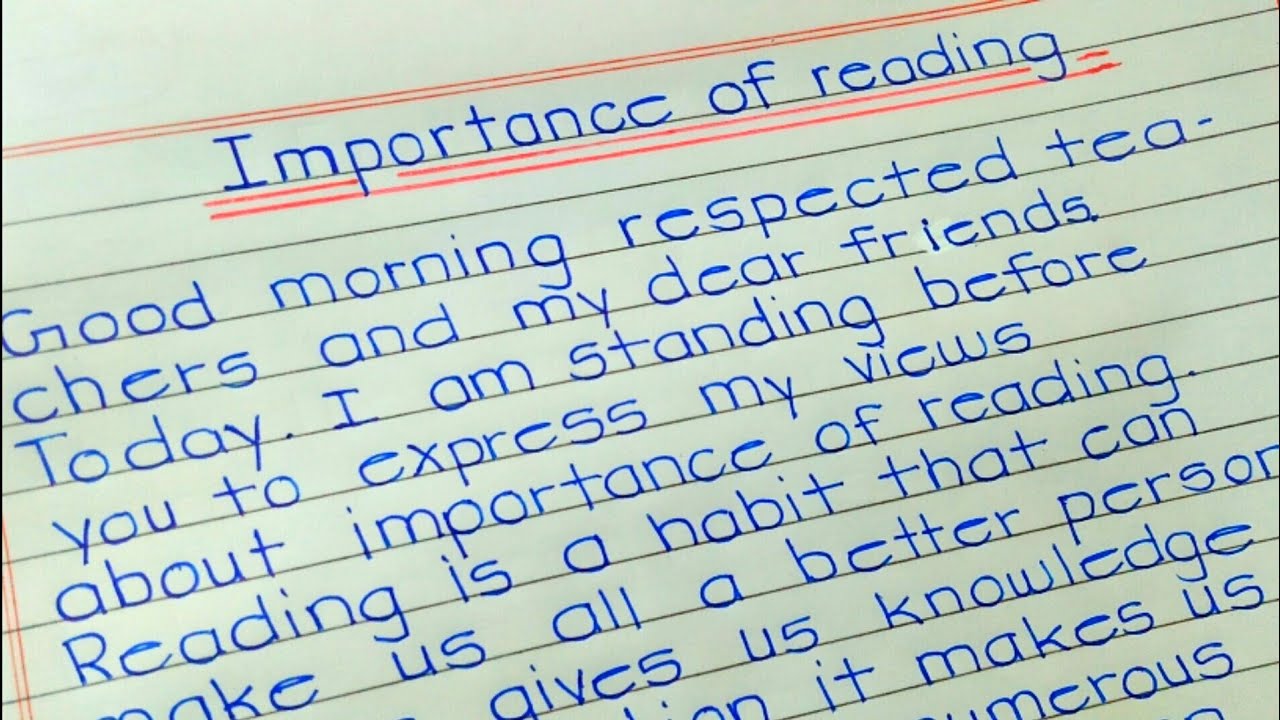 Importance of reading
Good morning respected tea-
chers and my dear friends.
Today. I am standing before
you to express my views
about importance of reading.
Reading is a habit that can
make us all a better person
gives us knowledge
it makes us